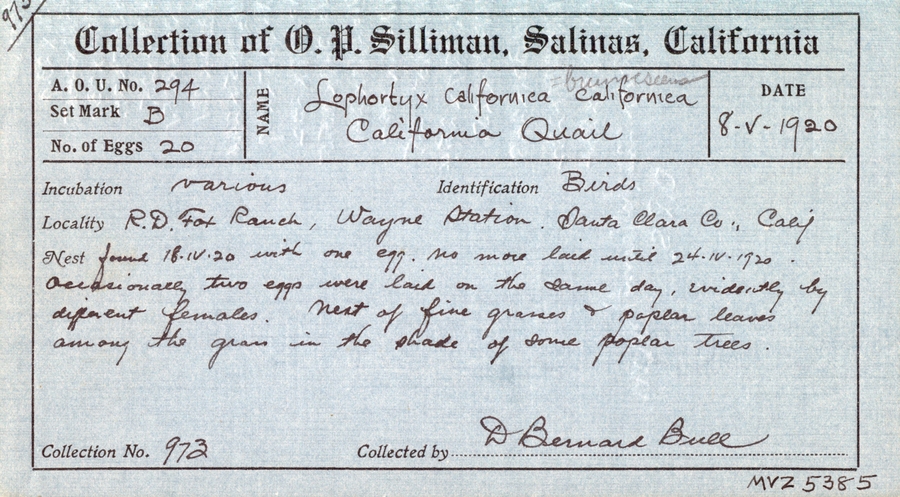 973
Collection of O. P. Silliman, Salinas, California
A. O. U. No. 294
Set Mark B
No. of Eggs 20
NAME
= brunnescens
Lophortyx Californica Californica
California Quail
DATE
8-V-1920
Incubation various Identification Birds
Locality R.D. Fox Ranch, Wayne Station. Santa Clara Co., Calif
Nest found 18-IV-20 with one egg. no more laid until 24-IV-1920.
Occasionally two eggs were laid on the same day, evidently by
different females. Nest of fine grasses & poplar leaves
among the grass in the shade of some poplar trees.
Collection No. 973 Collected by D Bernard Bull
MVZ 5385